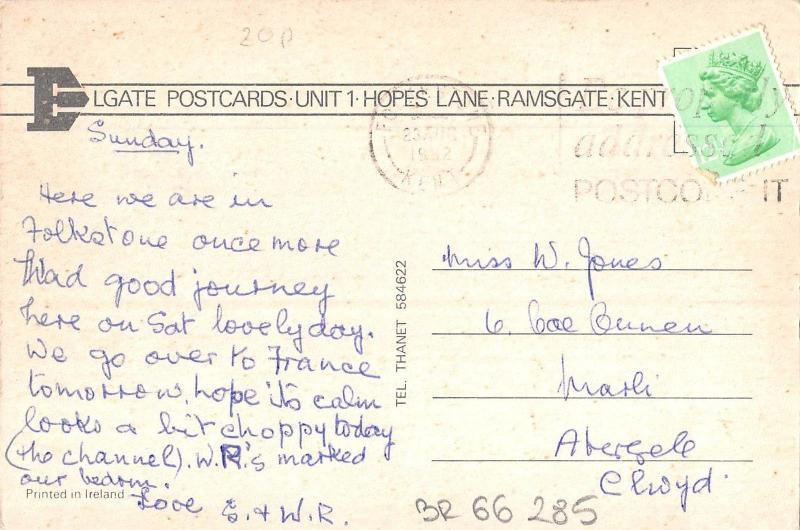 20p
ELGATE POSTCARDS·UNIT 1·HOPES LANE·RAMSGATE·KENT
Sunday.
Here we are in
Folkstone once more
Had good journey
here on Sat lovely day.
We go over to France
tomorrow, hope its calm
looks a bit choppy today
(the channel). W.R.'s marked
our bedrm.
Love E. + W.R.
Printed in Ireland
TEL. THANET 584622
FOLKESTONE
1982
KENT
Properly
addressed
POSTCODE IT
Miss W. Jones
6, Cae
Marli
Abergele
Clwyd.
BR 66 285